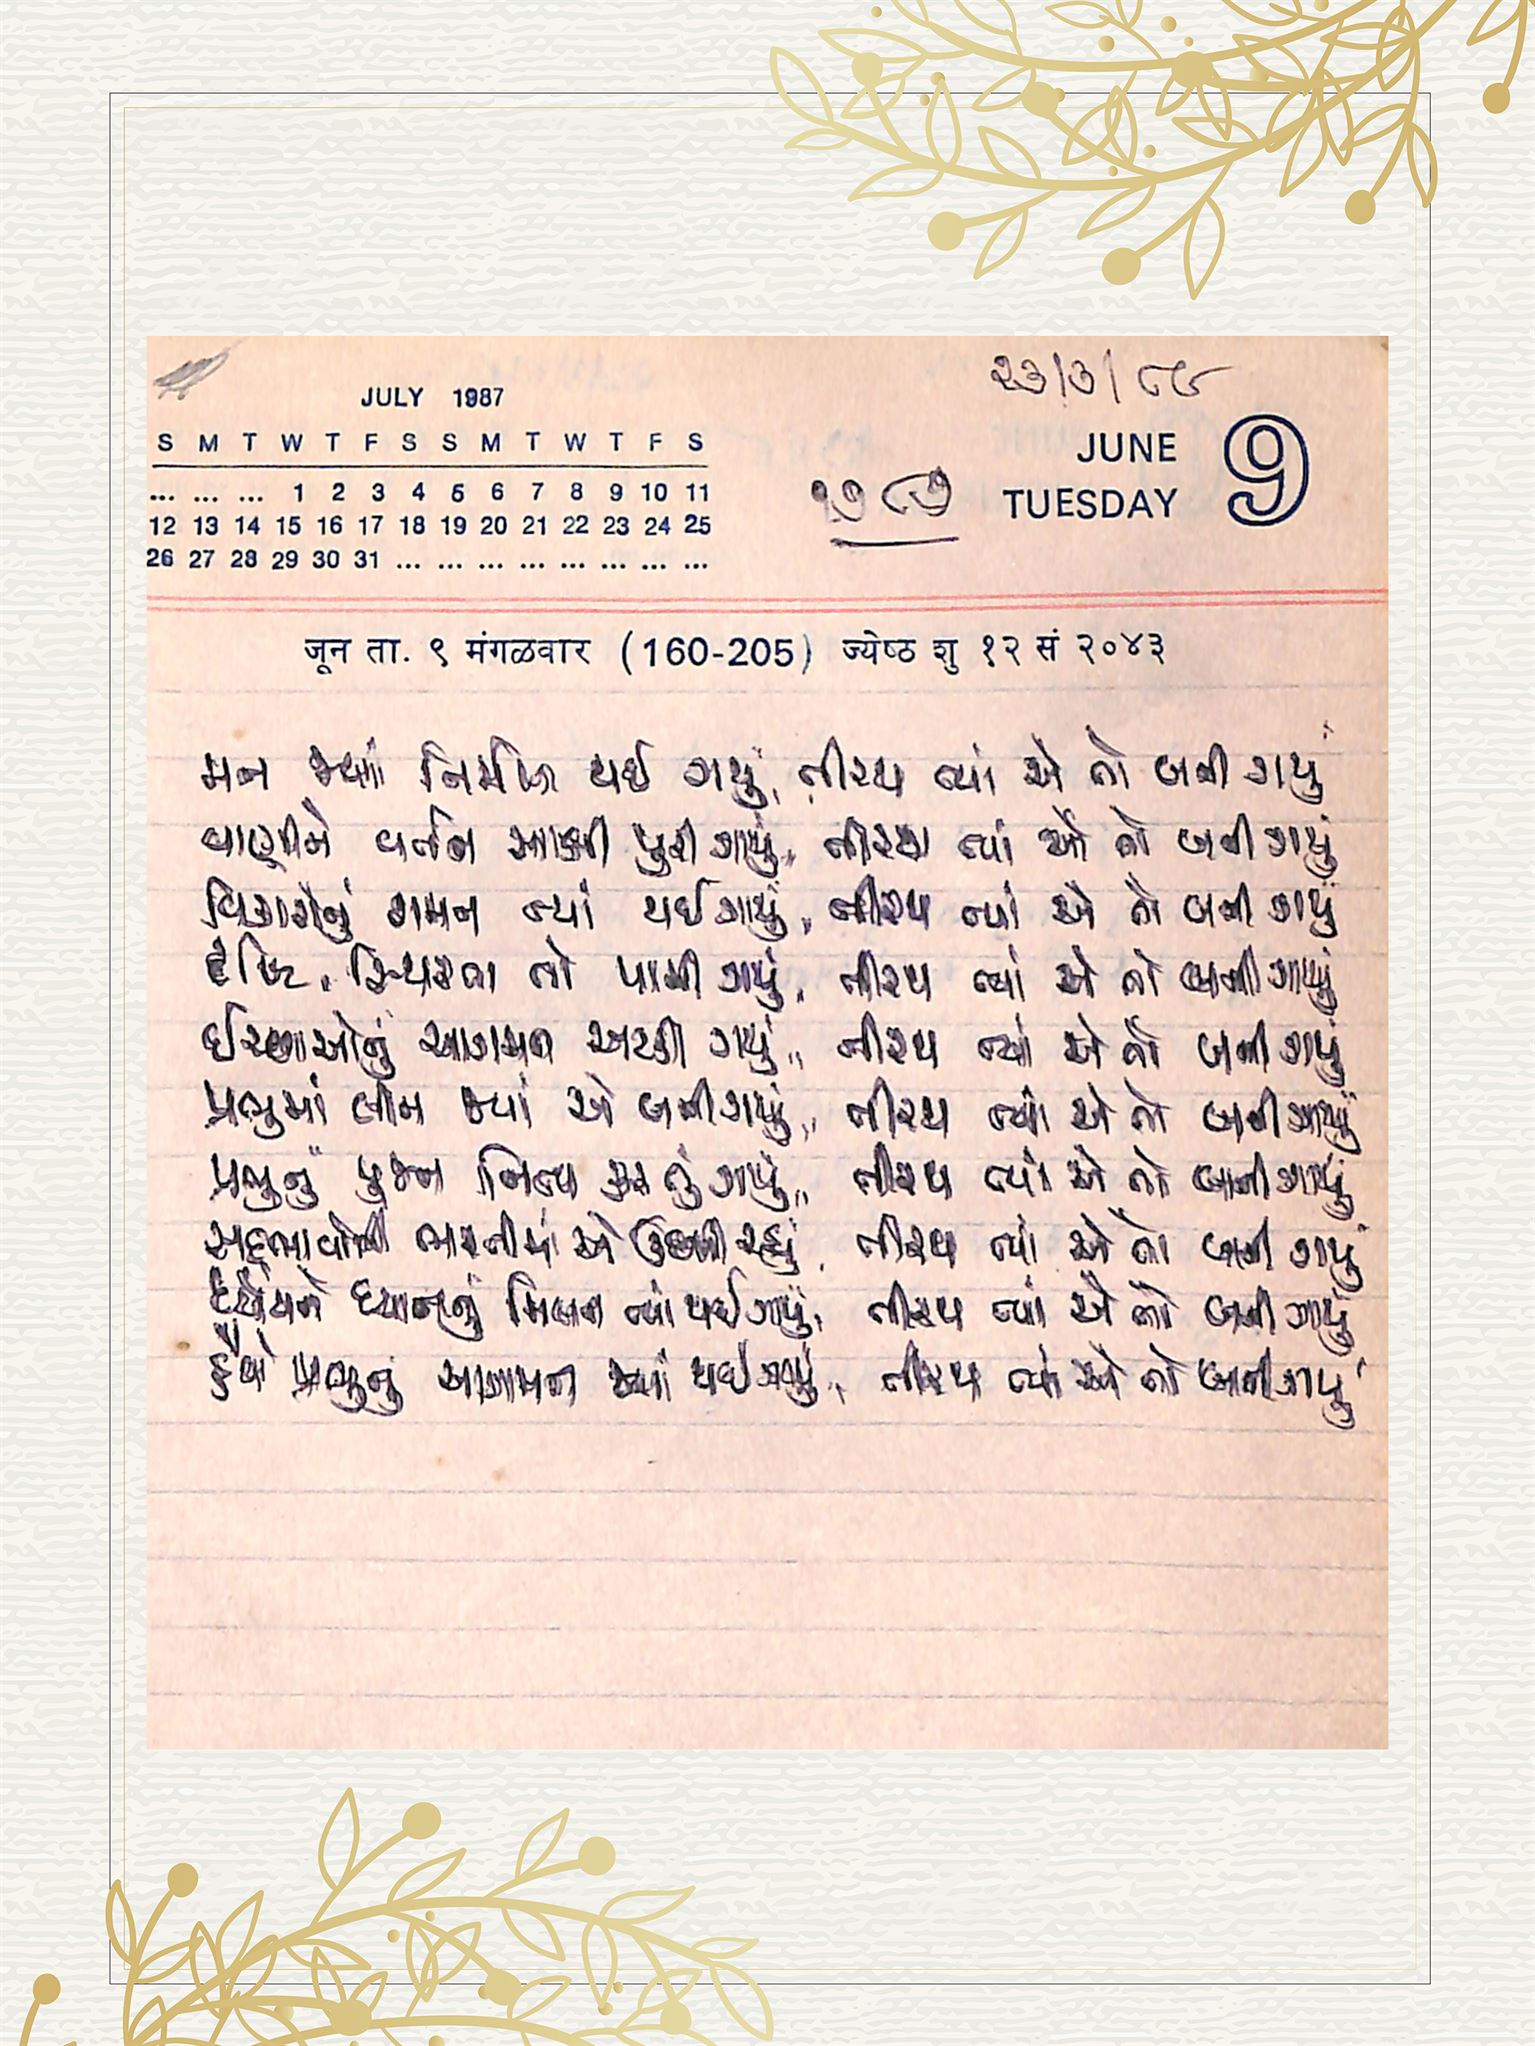 ૨૩/૩/૮૯
JULY 1987
S M T W T F S S M T W T F S
... ... ... 1 2 3 4 5 6 7 8 9 10 11
12 13 14 15 16 17 18 19 20 21 22 23 24 25
26 27 28 29 30 31 ... ... ... ... ... ... ... ...
JUNE 9
TUESDAY
जून ता. ९ मंगळवार (160-205) ज्येष्ठ शु १२ सं २०४३
મન જ્યાં નિર્મળ થઈ ગયું, તીરથ ત્યાં એ તો બની ગયું
વાણીને વર્તન સાક્ષી પુરી ગયું, તીરથ ત્યાં એ તો બની ગયું
વિચારોનું ગમન ત્યાં થઈ ગયું, તીરથ ત્યાં એ તો બની ગયું
દૃષ્ટિ, સ્થિરતા તો પામી ગયું, તીરથ ત્યાં એ તો બની ગયું
ઈચ્છાઓનું આગમન અટકી ગયું, તીરથ ત્યાં એ તો બની ગયું
પ્રભુમાં લીન જ્યાં એ બની ગયું, તીરથ ત્યાં એ તો બની ગયું
પ્રભુનું પુજન નિત્ય કરતું ગયું, તીરથ ત્યાં એ તો બની ગયું
સદ્દભાવોની ભરતીમાં એ ઉછળી રહ્યું, તીરથ ત્યાં એ તો બની ગયું
ધ્યેયને ધ્યાનનું મિલન ત્યાં થઈ ગયું, તીરથ ત્યાં એ તો બની ગયું
હૈયે પ્રભુનું આગમન જ્યાં થઈ ગયું, તીરથ ત્યાં એ તો બની ગયું